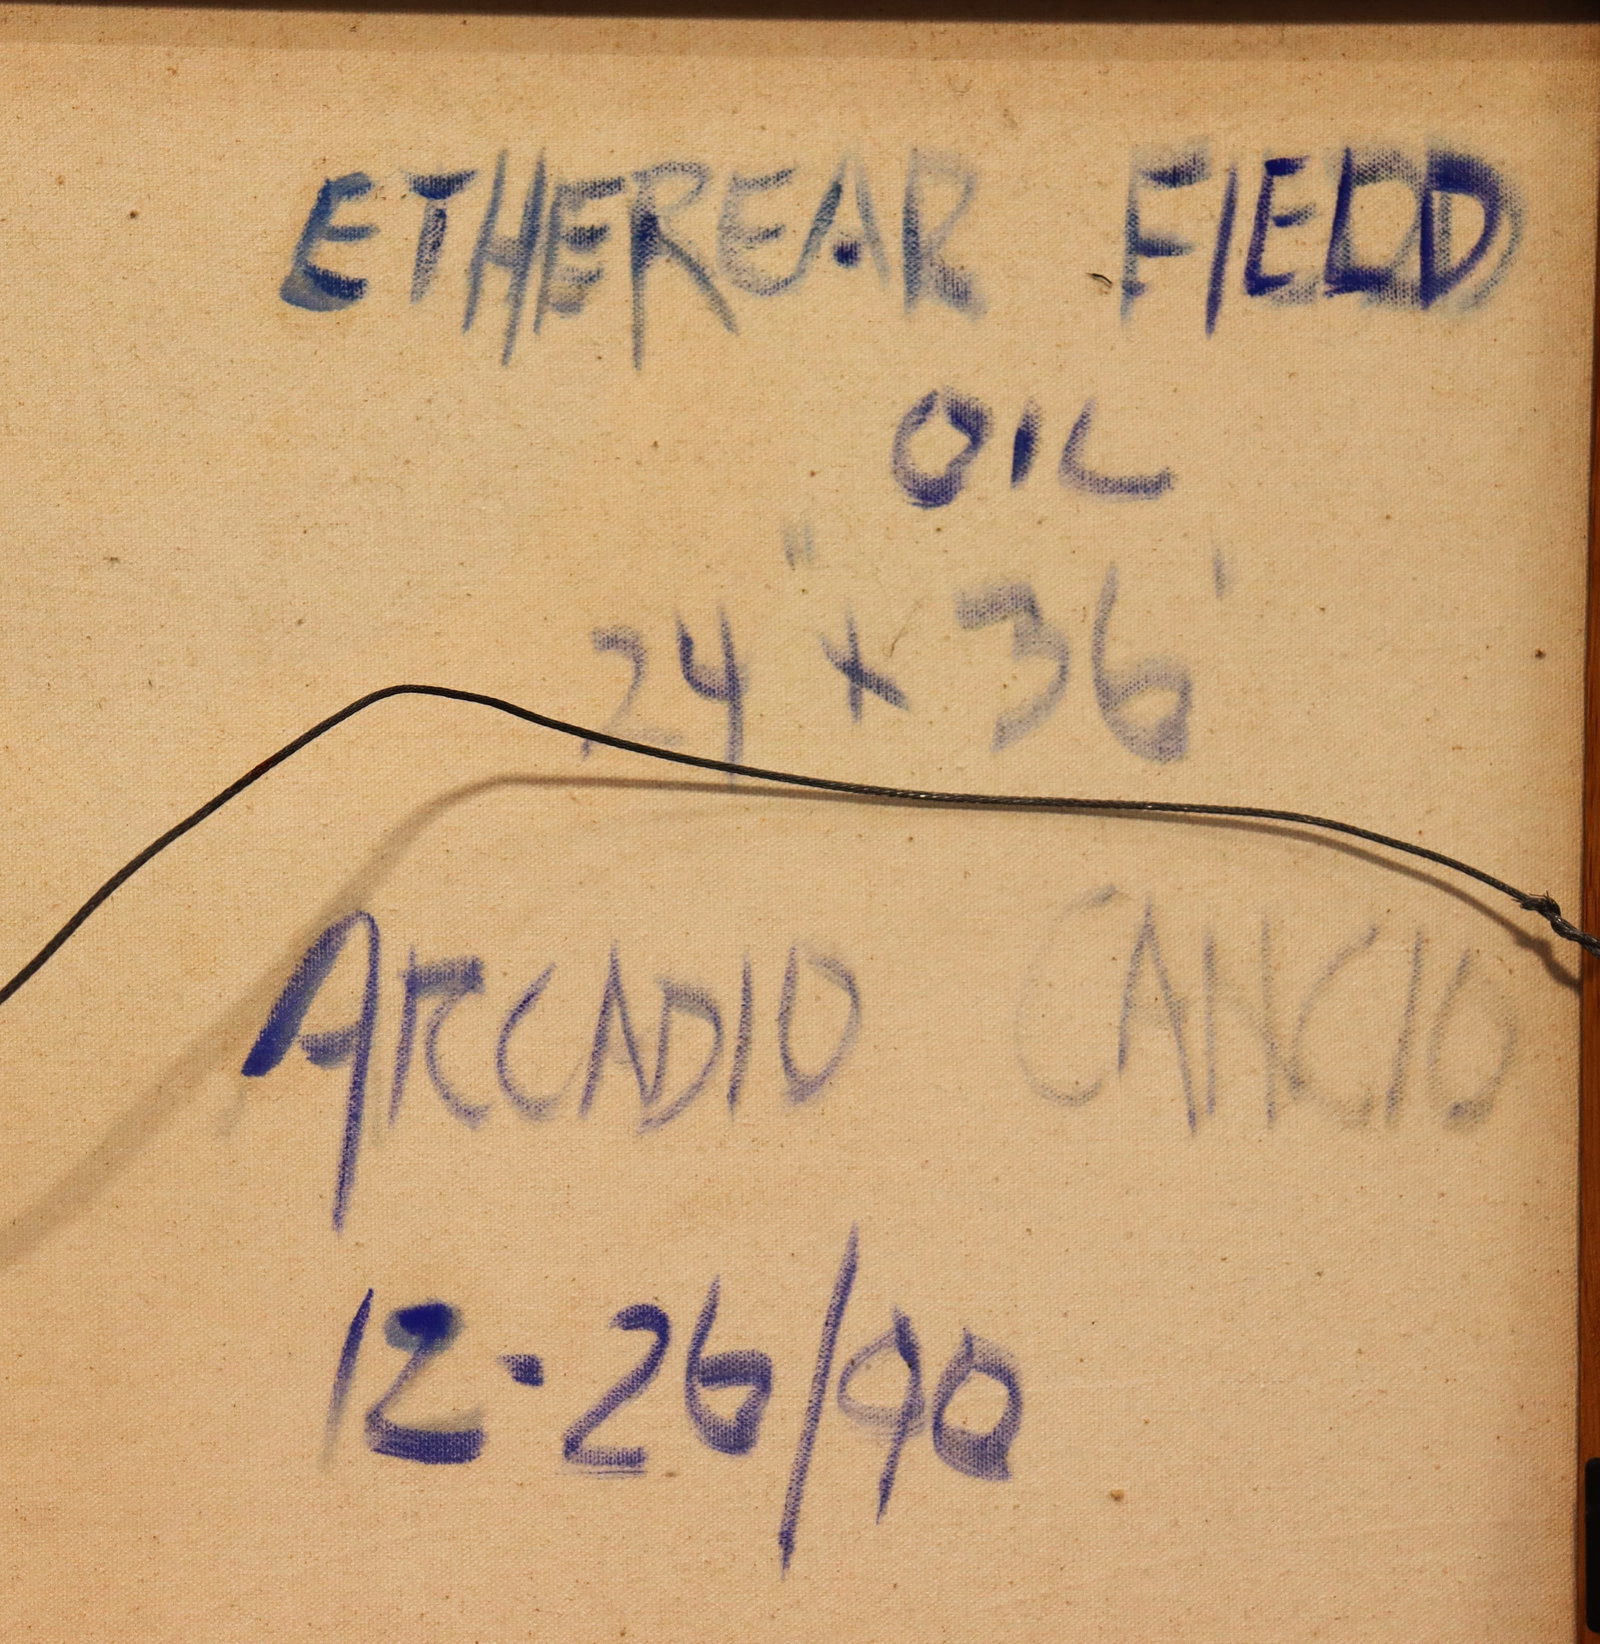 ETHEREAR FIELD
OIL
24" x 36'
ARCADIO CANCIO
12-26/90